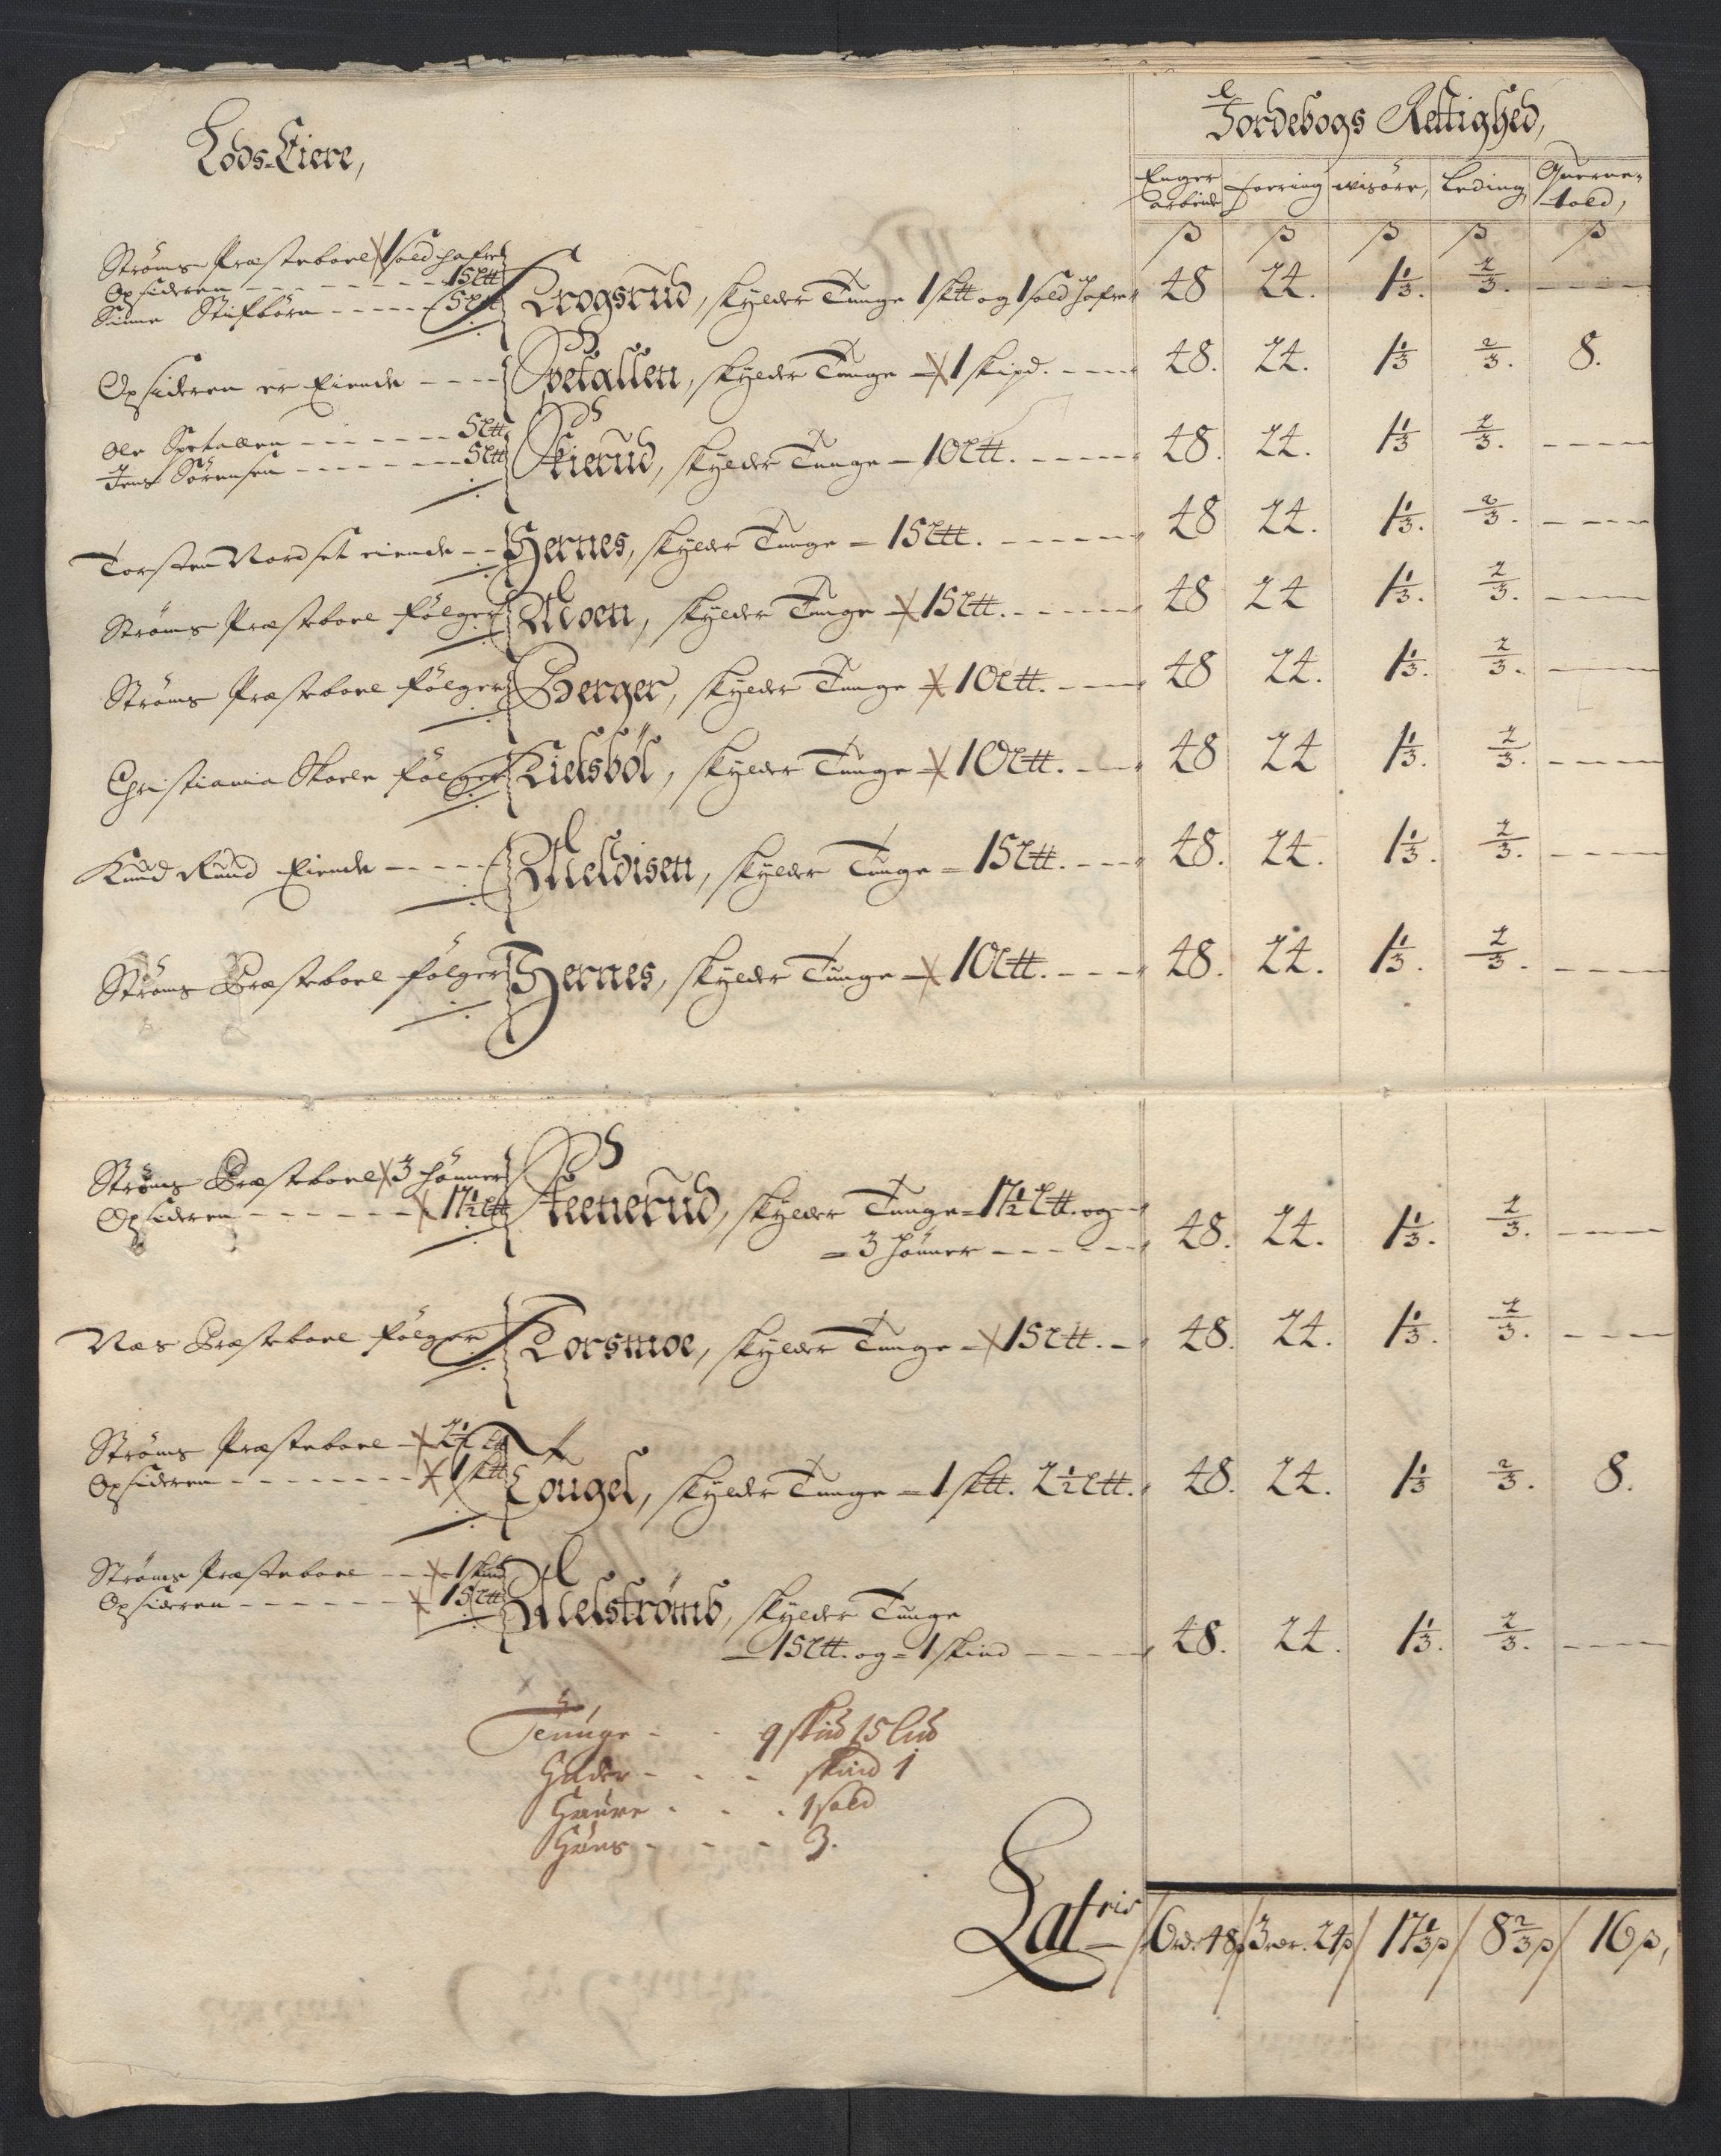 Lods-Eiere,
Jordebogs Rettighed,
Enger arbeide | foering | wisöre, | Leding, | Querne-told,
ß | ß | ß | ß | ß
Ströms Præstebole 1 sold hafre
Opsideren - - - 15 Ltt
Sinne Stifbörn - - - 5 Ltt
Krogsrud, skylder Tunge 1 sktt og 1 sold hafre 48 24. 1 1/3. 2/3. - - -
Opsideren er Eiende - - - Spetallen, skylder Tunge - 1 skipd. - - - 48. 24. 1 1/3 2/3. 8.
Ole Spetallen - - - 5 Ltt
Jens Sörensen - - - 5 Ltt
Skierud, skylder Tunge - 10 Ltt. - - - 48. 24. 1 1/3 2/3. - - -
Torsten Nordset eiende - - Hernes, skylder Tunge - 15 Ltt. - - - 48 24. 1 1/3. 2/3. - - -
Ströms Præstebole følger Moen, skylder Tunge - 15 Ltt. - - - 48 24 1 1/3. 2/3. - - -
Ströms Præstebole følger Berger, skylder Tunge - 10 Ltt. - - - 48 24. 1 1/3. 2/3. - - -
Christiania Skole følger Kielsböl, skylder Tunge - 10 Ltt. - - - 48 24 1 1/3. 2/3. - - -
Knud Rund Eiende - - - Meldisen, skylder Tunge - 15 Ltt. - - - 48. 24. 1 1/3. 2/3. - - -
Ströms Præstebole følger Hernes, skylder Tunge - 10 Ltt. - - - 48. 24. 1 1/3. 2/3. - - -
Ströms Præstebole 3 hönner
Opsideren - - - 17 1/2 Ltt
Steenerud, skylder Tunge - 17 1/2 Ltt. og -
- 3 hönner - - - 48. 24. 1 1/3. 2/3. - - -
Næs Præstebole följer Korsmoe, skylder Tunge - 15 Ltt. - 48. 24. 1 1/3. 2/3. - - -
Ströms Præstebole - 2 1/2 Ltt
Opsideren - - - 1 sktt
Fougel, skylder Tunge - 1 sktt. 2 1/2 Ltt. 48. 24. 1 1/3 2/3. 8.
Ströms Præstebole - - 1 skind
Opsideren - - - 15 Ltt
Melströmb, skylder Tunge
- 15 Ltt. og - 1 skind - - - 48. 24. 1 1/3. 2/3. - - -
Tunge - - 9 skud 15 Lud
Huder - - - skind 1
Haure - - - 1 sold
Höns - - - 3.
Latris 6 rdr. 48 ß 3 rdr. 24 ß 17 1/3 ß 8 2/3 ß 16 ß,